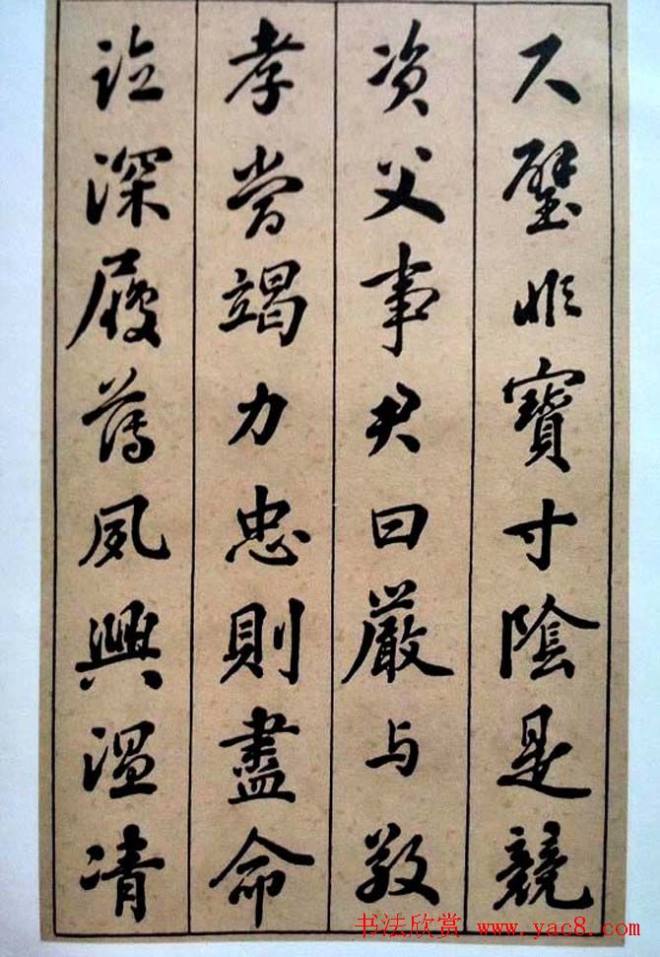 尺璧非寶寸陰是競
資父事君曰嚴与敬
孝當竭力忠則盡命
臨深履薄夙興温凊
书法欣赏 www.yac8.com